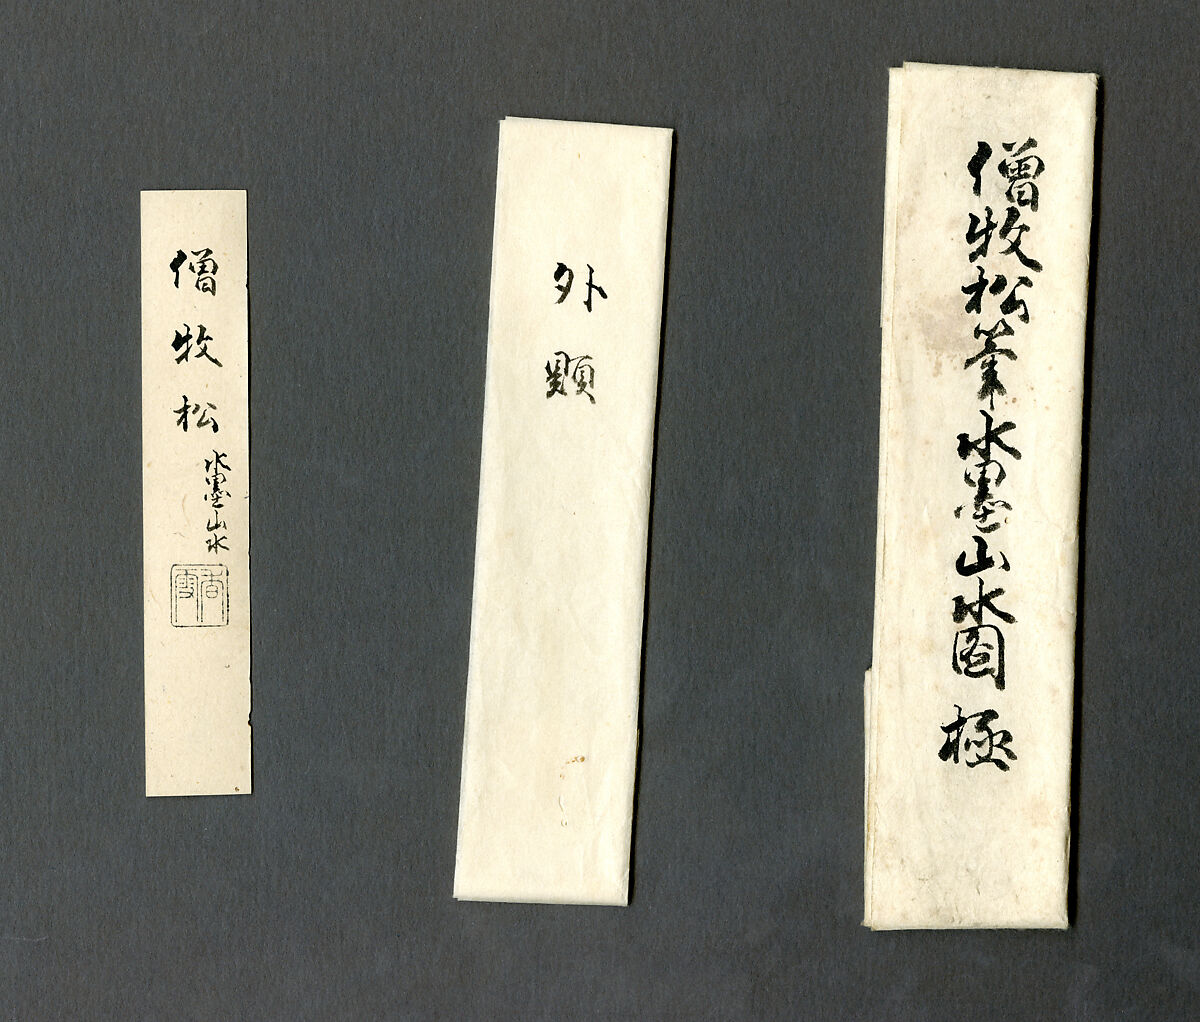 僧牧松筆水墨山水図 極
外題
僧牧松
水墨山水